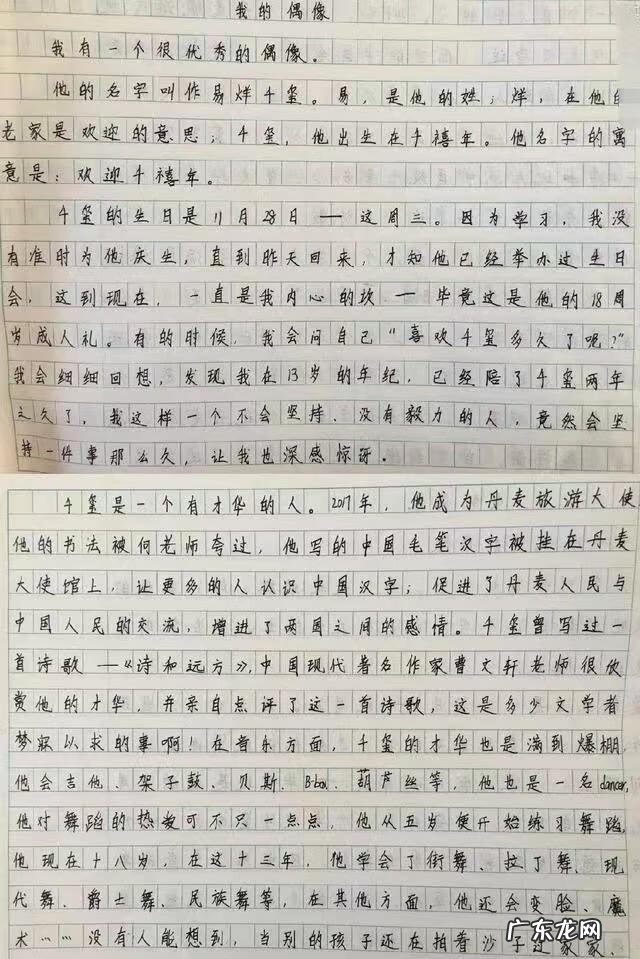 我的偶像
我有一个很优秀的偶像。
他的名字叫作易烊千玺。易，是他的姓；烊，在他的
老家是欢迎的意思；千玺，他出生在千禧年。他名字的寓
意是：欢迎千禧年。
千玺的生日是11月28日——这周三。因为学习，我没
有准时为他庆生，直到昨天回来，才知他已经举办过生日
会，这到现在，一直是我内心的坎——毕竟这是他的18周
岁成人礼。有的时候，我会问自己“喜欢千玺多久了呢？”
我会细细回想，发现我在13岁的年纪，已经陪了千玺两年
之久了，我这样一个不会坚持、没有毅力的人，竟然会坚
持一件事那么久，让我也深感惊讶。
千玺是一个有才华的人。2017年，他成为丹麦旅游大使，
他的书法被何老师夸过，他写的中国毛笔汉字被挂在丹麦
大使馆上，让更多的人认识中国汉字；促进了丹麦人民与
中国人民的交流，增进了两国之间的感情。千玺曾写过一
首诗歌——《诗和远方》，中国现代著名作家曹文轩老师很欣
赏他的才华，并亲自点评了这一首诗歌，这是多少文学者
梦寐以求的事啊！在音乐方面，千玺的才华也是满到爆棚，
他会吉他、架子鼓、贝斯、B-box、葫芦丝等，他也是一名dancer，
他对舞蹈的热爱可不只一点点，他从五岁便开始练习舞蹈，
他现在十八岁，在这十三年，他学会了街舞、拉丁舞、现
代舞、爵士舞、民族舞等，在其他方面，他还会变脸、魔
术……没有人能想到，当别的孩子还在拍着沙子过家家、
广东龙网